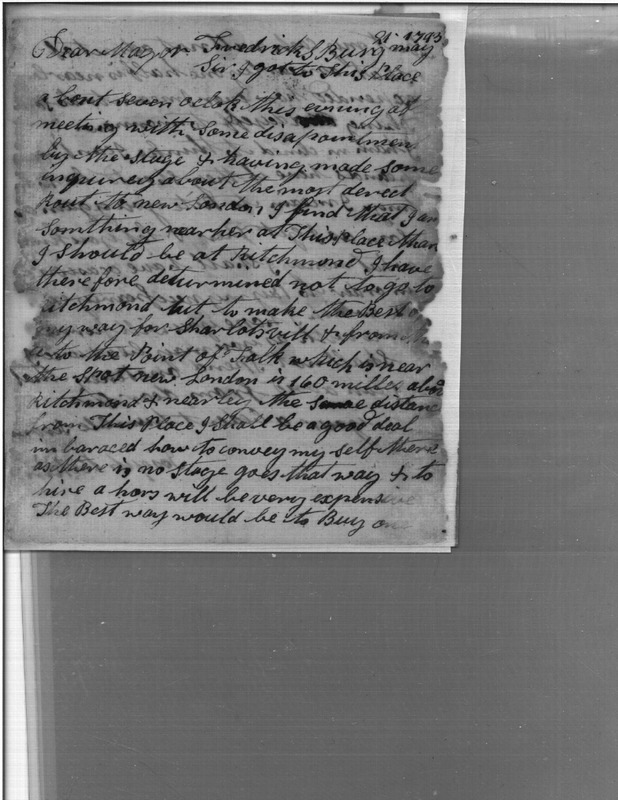 21 1793
Dear Magor Fredricks Burg may
Sir I got to This Place
about seven oclok this evning after
meeting with some disapointment
by the stage & having made some
inquirey about the most derect
Rout to new London, I find that I am
somthing nearher at This place than
I should be at Ritchmond I have
therefore determined not to go to
Ritchmond but to make the Best of
my way for Sharlotsvill & from
to the Point of Falk which is near
the spot new London is 160 milles above
Ritchmond & nearley the same distance
from This Place I shall be a good deal
imbaraced how to convey my self there
as there is no stage goes that way & to
hire a hors will be very expensive
The Best way would be to Buy one